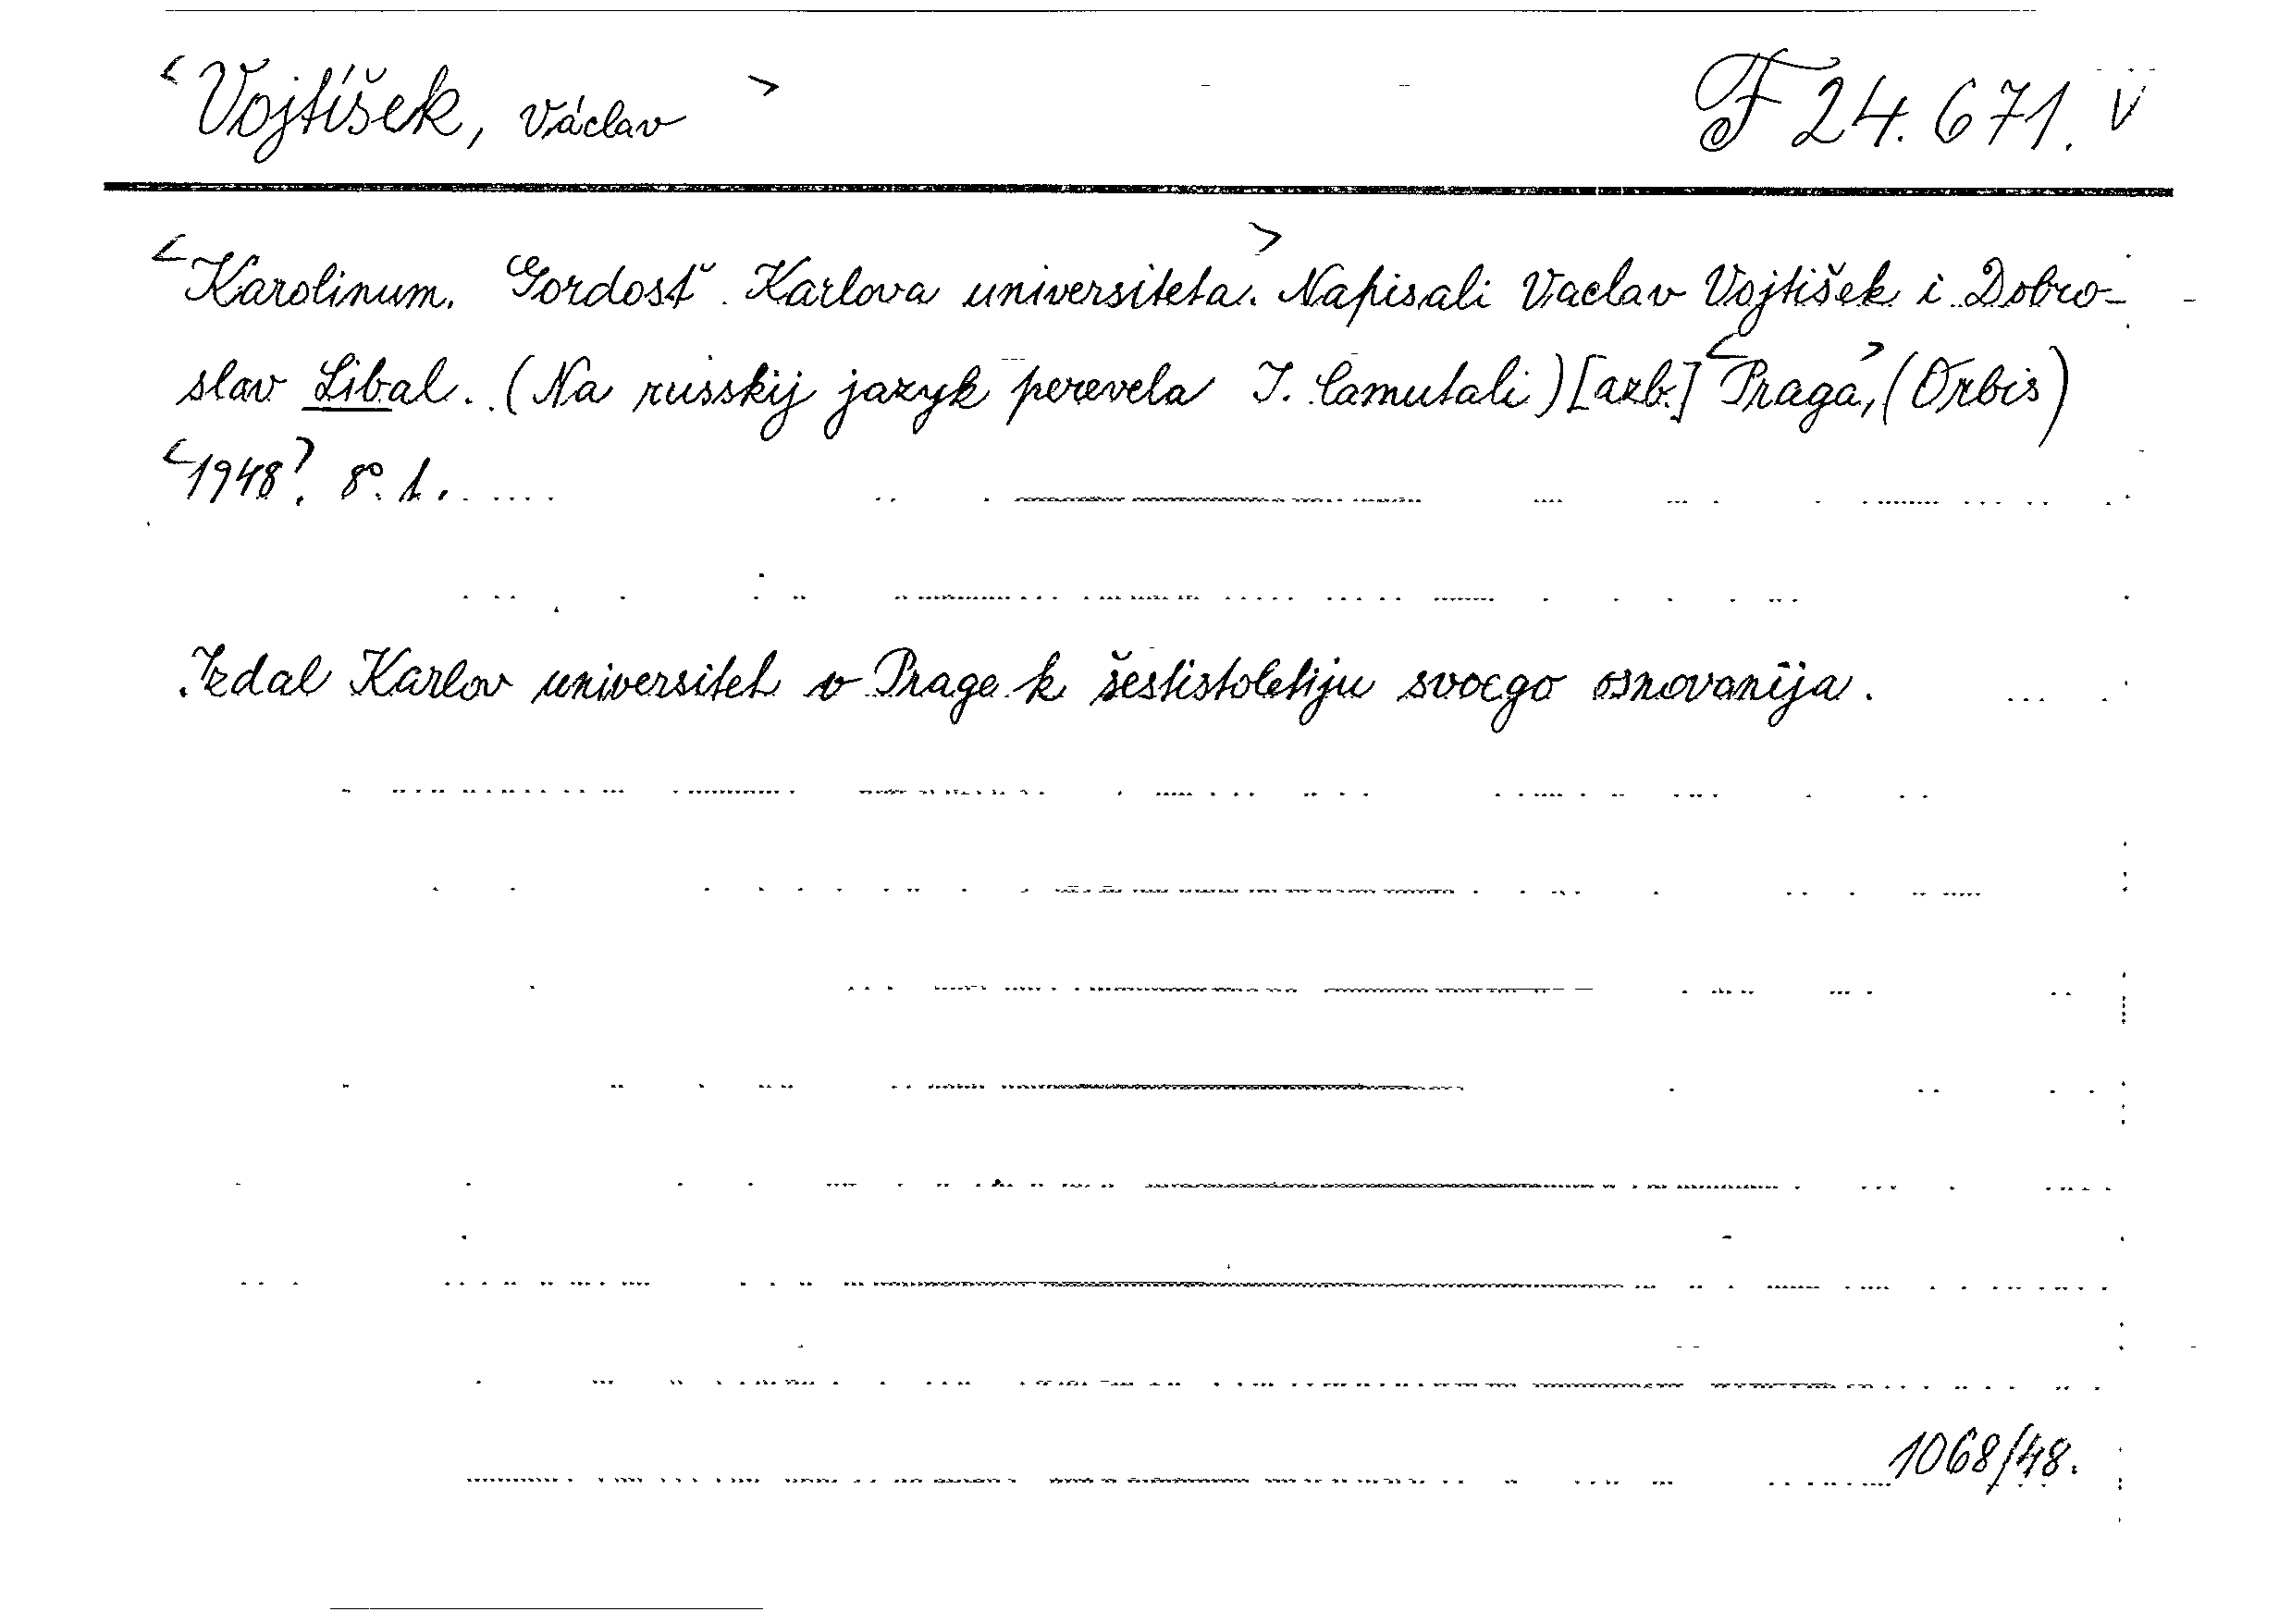 <Vojtíšek, Václav> F 24.671. V
<Karolinum. Gordosť Karlova universiteta.> Napisali Vaclav Vojtišek i Dobro-
slav Libal. (Na russkij jazyk perevela I. Camutali) [azb.] <Praga>, (Orbis)
<1948>. 8°. 1.
Izdal Karlov universitet v Prage k šestistoletiju svoego osnovanija.
1068/48.